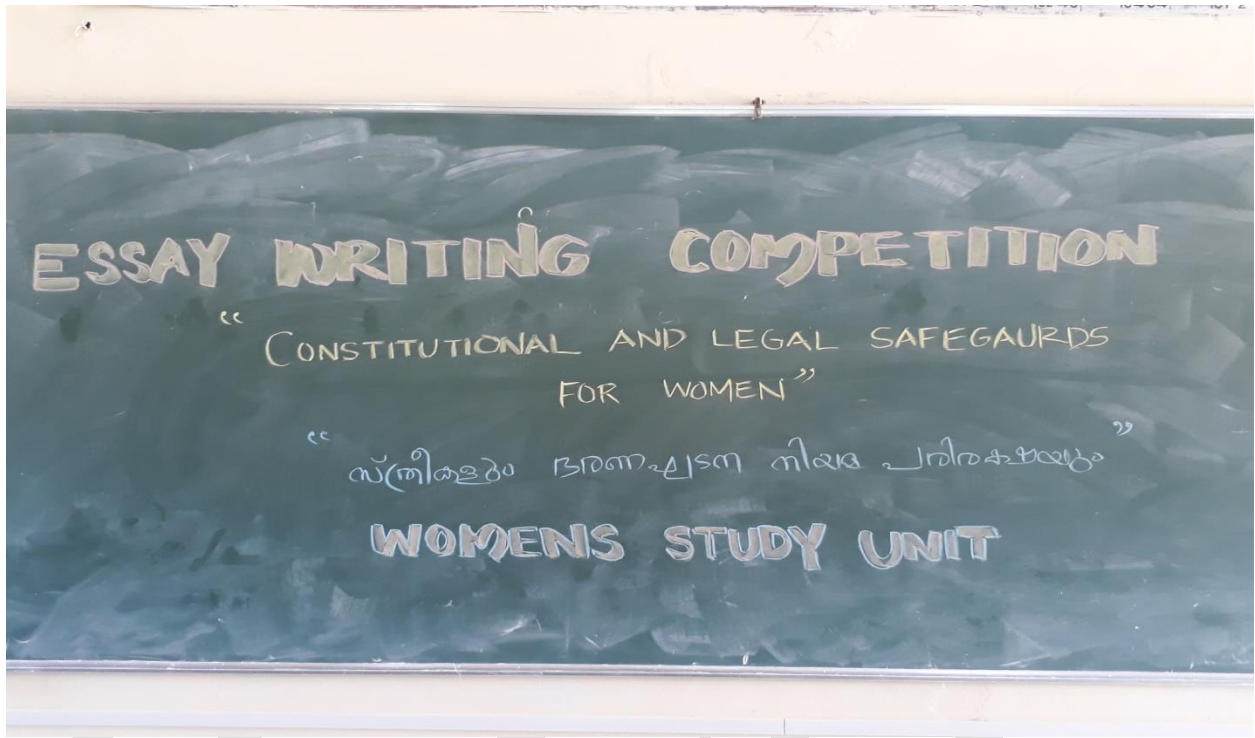 ESSAY WRITING COMPETITION
“ CONSTITUTIONAL AND LEGAL SAFEGAURDS
FOR WOMEN ”
“ സ്ത്രീകളും ഭരണഘടന നിയമ പരിരക്ഷയും ”
WOMENS STUDY UNIT